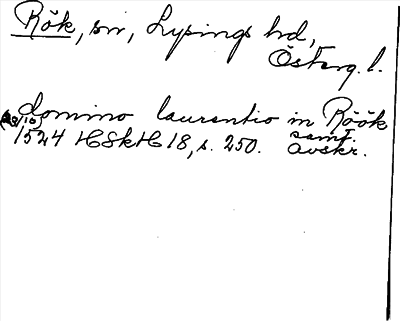 Rök, sn, Lysings hd,
Österg. l.
domino laurentio in Röök
(28/10) 1524 HSkH 18, s. 250. samt. avskr.